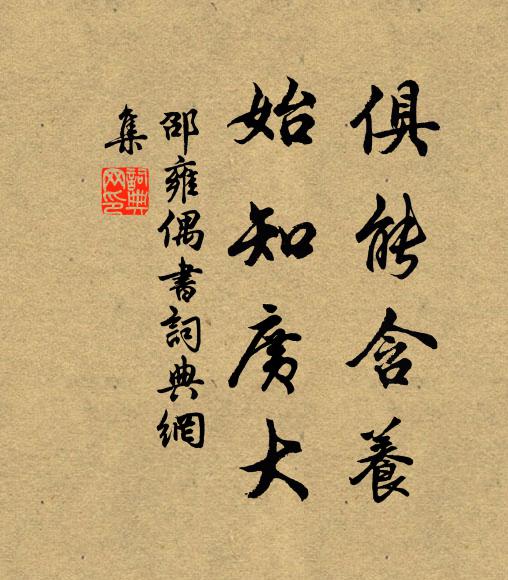 俱能含養
始知廣大
邵雍偶書詞典網
集
詞典
网印